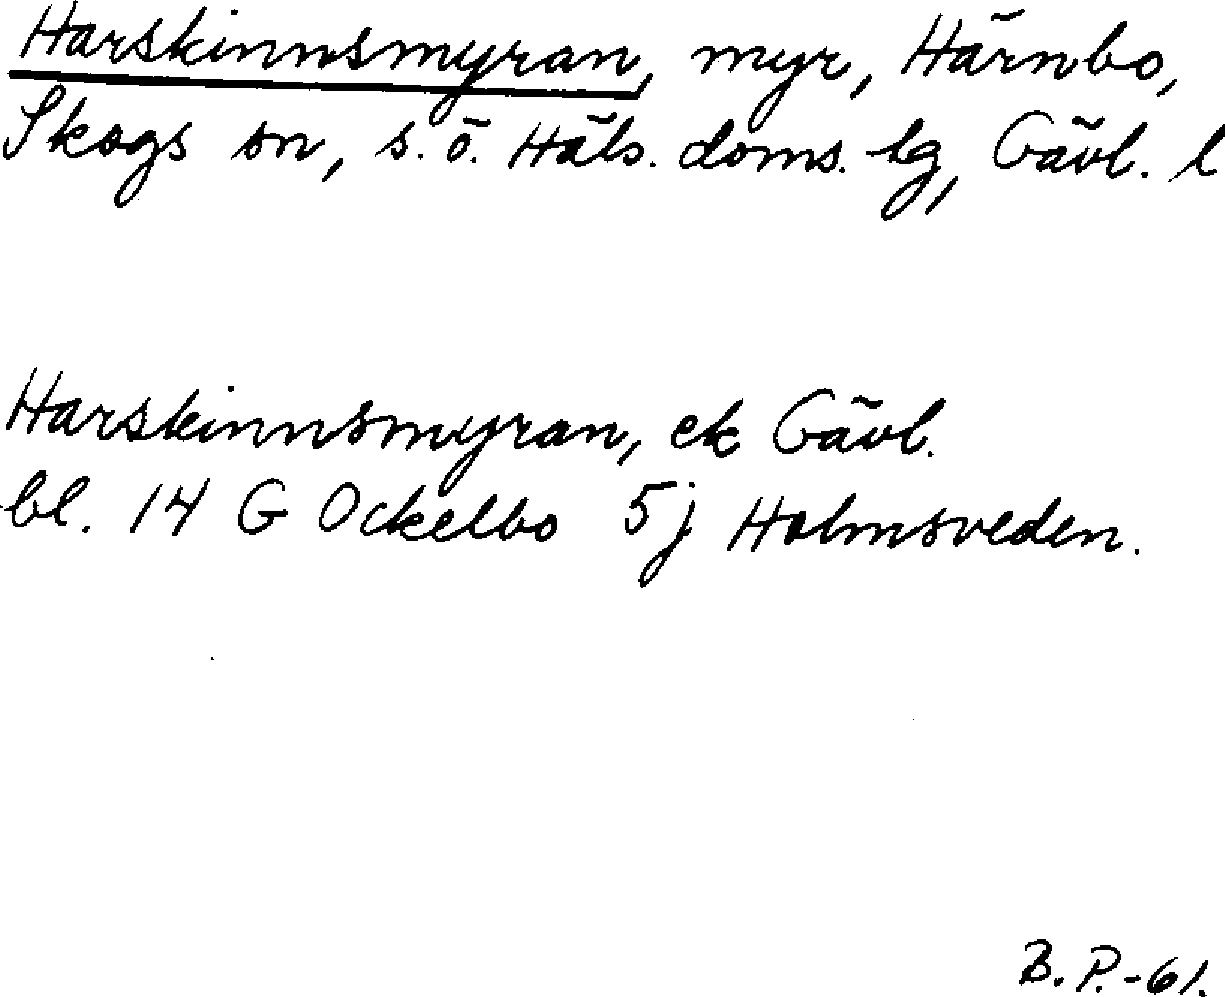 Harskinnsmyran, myr, Härnbo,
Skogs sn, s. ö. Häls. doms. lg, Gävl. l
Harskinnsmyran, ek Gävl.
bl. 14 G Ockelbo 5j Holmsveden.
B. P. -61.